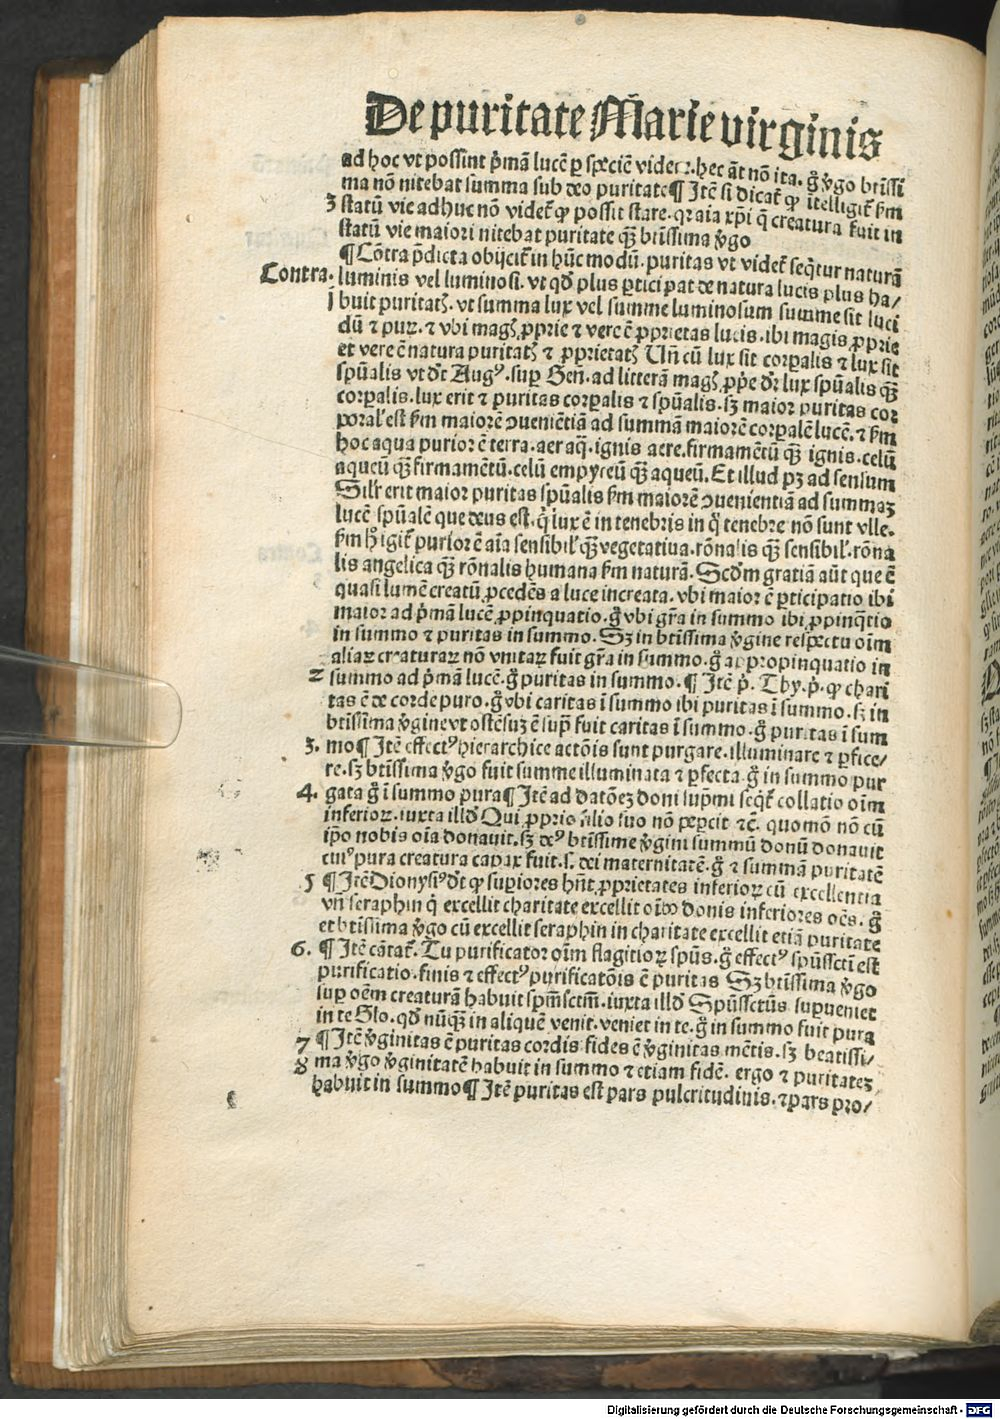 De puritate Marie virginis
ad hoc vt possint p̄mā lucē ꝑ speciē videri. hec āt nō ita. g̊ v̊go btīssi
ma nō nitebat summa sub deo puritate ¶ Itē si dicat᷑ ꝙ ītelligit᷑ ẜm
3 statū vie adhuc nō videt᷑ ꝙ possit stare. qr aīa xp̄i q̄ creatura fuit in
statū vie maiori nitebat puritate qꝫ̄ btīssima v̊go
¶ Cōtra p̄dicta obijcit᷑ in hūc modū. puritas vt videt᷑ seq̄tur naturā
Contra. luminis vel luminosi. vt qd̄ plus ꝑticipat de natura lucis plus ha/
j buit puritatꝭ. vt summa lux vel summe luminosum summe sit luci
dū ⁊ puꝝ. ⁊ vbi magꝭ ꝓprie ⁊ vere ē ꝓprietas lucis. ibi magis ꝓprie
et vere ē natura puritatꝭ ⁊ ꝓprietatꝭ Uñ cū lux sit corꝑalis ⁊ lux sit
spūalis vt dt̄ Augꝰ. suꝑ Geñ. ad litterā magꝭ ꝓpe dr̄ lux spūalis qꝫ̄
corꝑalis. lux erit ⁊ puritas corꝑalis ⁊ spūalis. sꝫ maior puritas cor
poral᷑ est ẜm maiorē ꝯueniētiā ad summā maiorē corꝑalē lucē. ⁊ ẜm
hoc aqua purior ē terra. aer aq̄. ignis aere. firmamētū qꝫ̄ ignis. celū
aqueū qꝫ̄ firmamētū. celū empyreū qꝫ̄ aqueū. Et illud pꝫ ad sensum
Sil᷑r erit maior puritas spūalis ẜm maiorē ꝯuenientiā ad summaꝫ
lucē spūalē que deus est. q̇ lux ē in tenebris in q̊ tenebre nō sunt vlle.
ẜm h̊ igit᷑ purior ē aīa sensibil᷑ qꝫ̄ vegetatiua. rōnalis qꝫ̄ sensibil᷑. rōna
lis angelica qꝫ̄ rōnalis humana ẜm naturā. Scd̄m gratiā aūt que ē
quasi lumē creatū ꝓcedēs a luce increata. vbi maior ē ꝑticipatio ibi
maior ad p̄mā lucē ꝓpinquatio. g̊ vbi gr̄a in summo ibi ꝓpinq̄tio
in summo ⁊ puritas in summo. Sꝫ in btīssima v̊gine respectu oīm
aliaꝝ creaturaꝝ nō vnitaꝝ fuit gr̄a in summo. g̊ appropinquatio in
2 summo ad p̄mā lucē. g̊ puritas in summo. ¶ Itē p̊. Thy. p̊. ꝙ chari
tas ē de corde puro. g̊ vbi caritas ī summo ibi puritas ī summo. sꝫ in
btīssima v̊gine vt ostēsuꝫ ē supͣ fuit caritas ī summo. g̊ puritas ī sum
3. mo ¶ Itē effectꝰ hierarchice actōis sunt purgare. illuminare ⁊ ꝑfice/
re. sꝫ btīssima v̊go fuit summe illuminata ⁊ ꝑfecta. g̊ in summo pur
4. gata g̊ ī summo pura ¶ Itē ad datōeꝫ doni supͥmi seq̄t᷑ collatio oīm
inferioꝝ. iuxta illd̄ Qui ꝓprio filio suo nō peꝑcit ⁊c̄. quomō nō cū
ip̄o nobis oīa donauit. sꝫ deꝰ btīssime v̊gini summū donū donauit
cuiꝰ pura creatura capax fuit. s. dei maternitatē. g̊ ⁊ summā puritatē
5 ¶ Itē Dionysiꝰ dt̄ ꝙ suꝑiores hn̄t ꝓprietates inferioꝝ cū excellentia
vñ seraphin q̄ excellit charitate excellit oībꝫ donis inferiores oēs. g̊
et btīssima v̊go cū excellit seraphin in charitate excellit etiā puritate
6. ¶ Itē cātat᷑. Tu purificator oīm flagitioꝝ spūs. g̊ effectꝰ spūssctī est
purificatio. finis ⁊ effectꝰ purificatōis ē puritas Sꝫ btīssima v̊go
suꝑ oēm creaturā habuit spm̄sctm̄. iuxta illd̄ Spūssctūs suꝑueniet
in te Glo. qd̄ nūqꝫ̄ in aliquē venit. veniet in te. g̊ in summo fuit pura
7 ¶ Itē v̊ginitas ē puritas cordis fides ē v̊ginitas mētis. sꝫ beatissi/
8 ma v̊go v̊ginitatē habuit in summo ⁊ etiam fidē. ergo ⁊ puritateꝫ
habuit in summo ¶ Itē puritas est pars pulcritudinis. ⁊ pars pro/
Digitalisierung gefördert durch die Deutsche Forschungsgemeinschaft - DFG